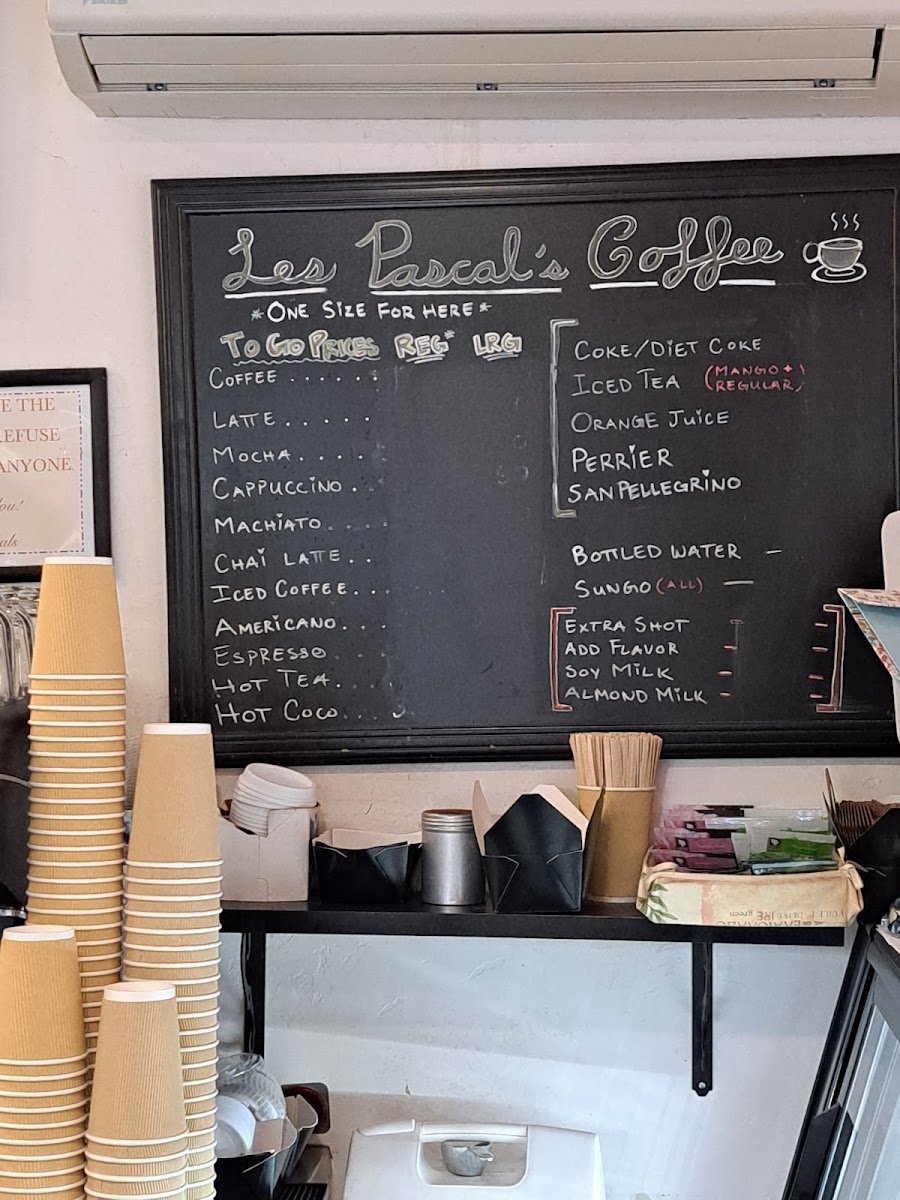 Les Pascal's Coffee
*ONE SIZE FOR HERE*
TO GO PRICES REG* LRG
COFFEE ......
LATTE .....
MOCHA .....
CAPPUCCINO ..
MACHIATO ....
CHAI LATTE ..
ICED COFFEE...
AMERICANO ...
ESPRESSO ...
HOT TEA....
HOT COCO....
COKE/DIET COKE
ICED TEA (MANGO +
REGULAR)
ORANGE JUICE
PERRIER
SAN PELLEGRINO
BOTTLED WATER –
SUNGO (ALL) –
EXTRA SHOT –
ADD FLAVOR – –
SOY MILK – –
ALMOND MILK – –
E THE
REFUSE
ANYONE
ou!
als